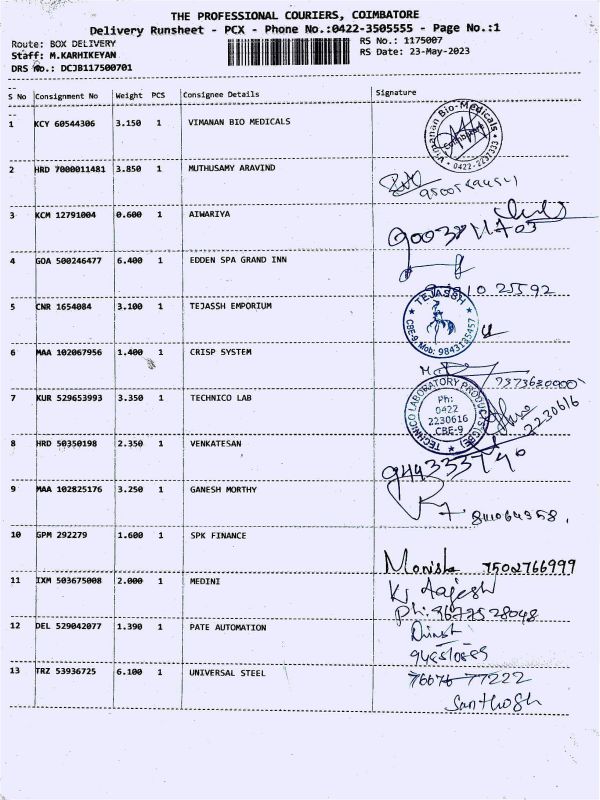 THE PROFESSIONAL COURIERS, COIMBATORE
Delivery Runsheet - PCX - Phone No.:0422-3505555 - Page No.:1
Route: BOX DELIVERY
RS No.: 1175007
Staff: M.KARHIKEYAN
RS Date: 23-May-2023
DRS No.: DCJB117500701
S No Consignment No Weight PCS Consignee Details Signature
1 KCY 60544306 3.150 1 VIMANAN BIO MEDICALS
Vimanan Bio-Medicals
0422-2231333
2 HRD 7000011481 3.850 1 MUTHUSAMY ARAVIND
3 KCM 12791004 0.600 1 AIWARIYA
4 GOA 500246477 6.400 1 EDDEN SPA GRAND INN
25592
5 CNR 1654084 3.100 1 TEJASSH EMPORIUM
TEJASSH
CBE-9. Mob: 9843135457
6 MAA 102067956 1.400 1 CRISP SYSTEM
7 KUR 529653993 3.350 1 TECHNICO LAB
TECHNICO LABORATORY PRODUCTS (CBE)
Ph:
0422
2230616
CBE-9
2230616
8 HRD 50350198 2.350 1 VENKATESAN
9 MAA 102825176 3.250 1 GANESH MORTHY
10 GPM 292279 1.600 1 SPK FINANCE
Monisha 7502766999
11 IXM 503675008 2.000 1 MEDINI
K. Rajesh
12 DEL 529042077 1.390 1 PATE AUTOMATION
13 TRZ 53936725 6.100 1 UNIVERSAL STEEL
76676 77222
Santhosh